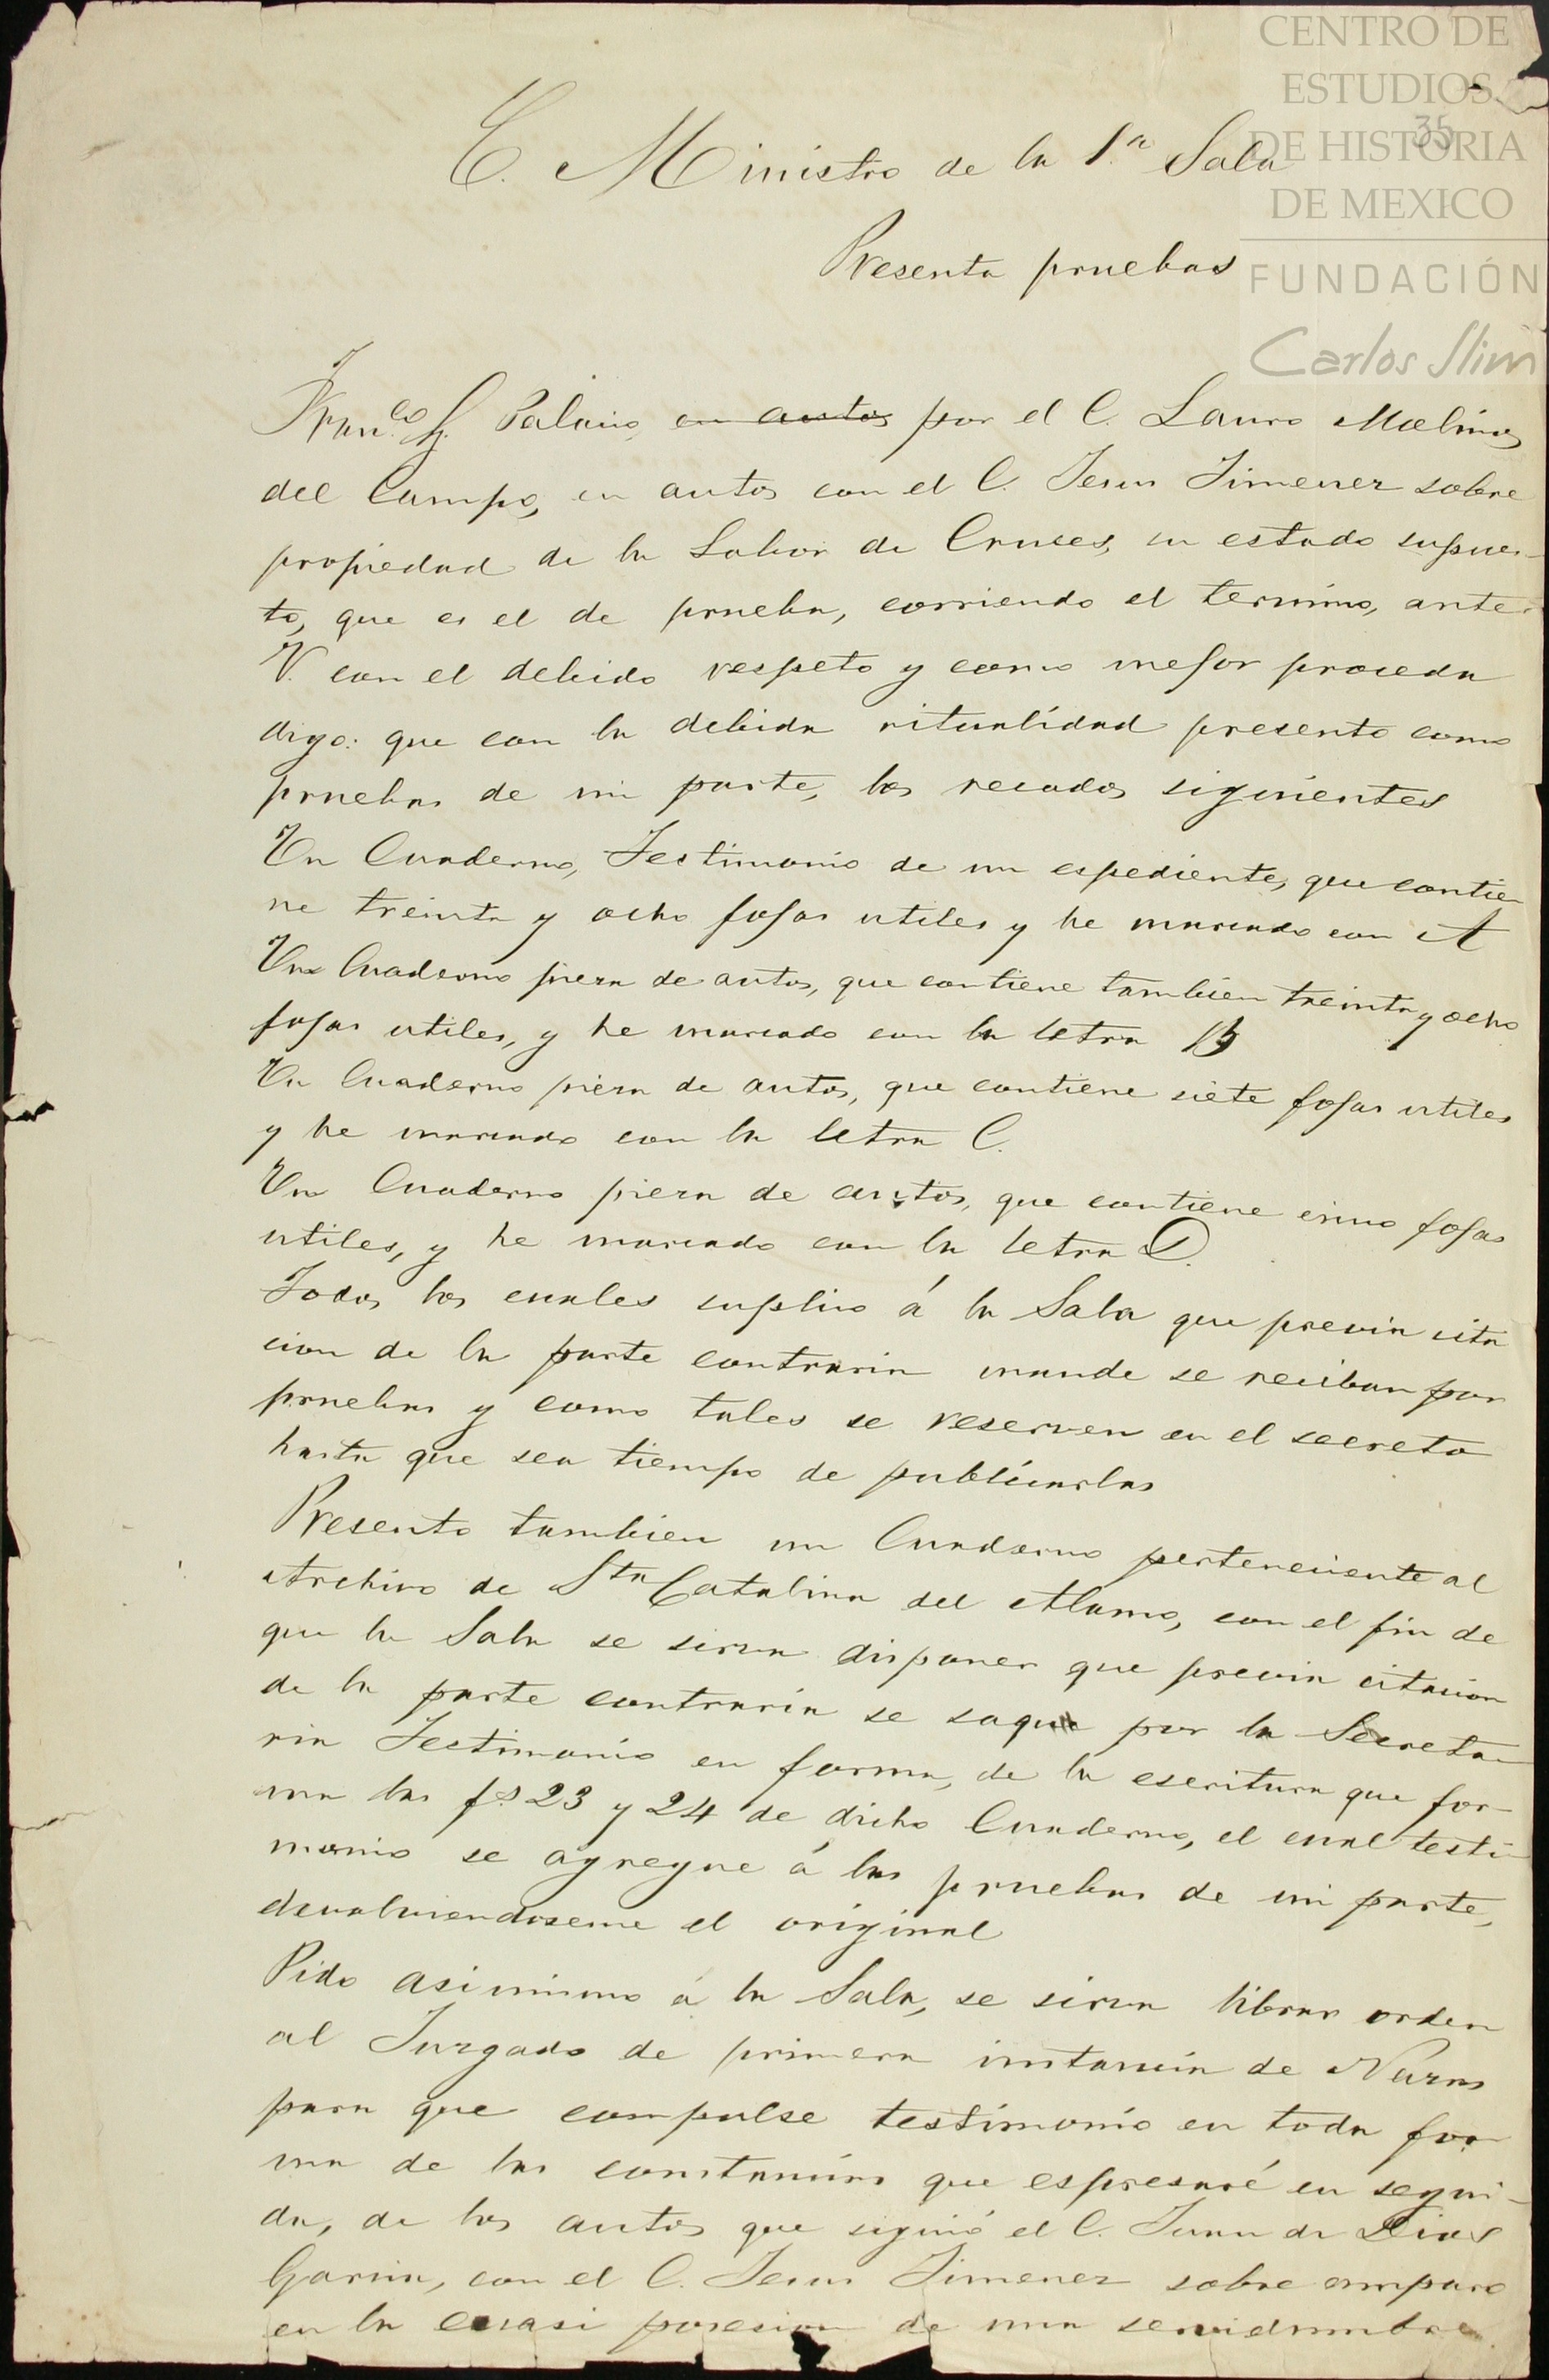 CENTRO DE
ESTUDIOS
DE HISTORIA
DE MEXICO
FUNDACIÓN
Carlos Slim
35
C. Ministro de la 1.a Sala
Presenta pruebas
Franco. G. Palacio, en autos por el C. Lauro Molina
del Campo, en autos con el C. Jesus Jimenez sobre
propiedad de la Labor de Cruces, en estado supues-
to, que es el de prueba, corriendo el termino, ante
V. con el debido respeto y como mejor proceda
digo: que con la debida ritualidad presento como
pruebas de mi parte, los recados siguientes
Un Cuaderno, Testimonio de un espediente, que contie-
ne treinta y ocho fojas utiles y he marcado con A
Un Cuaderno pieza de autos, que contiene tambien treinta y ocho
fojas utiles, y he marcado con la letra B
Un Cuaderno pieza de autos, que contiene siete fojas utiles
y he marcado con la letra C.
Un Cuaderno pieza de autos, que contiene cinco fojas
utiles, y he marcado con la letra D.
Todos los cuales suplico á la Sala que previa cita
cion de la parte contraria mande se reciban por
pruebas y como tales se reserven en el secreto
hasta que sea tiempo de publicarlas
Presento tambien un Cuaderno perteneciente al
Archivo de Sta Catalina del Alamo, con el fin de
que la Sala se sirva disponer que previa citacion
de la parte contraria se saque por la Secreta-
ria Testimonio en forma, de la escritura que for-
ma las fs. 23 y 24 de dicho Cuaderno, el cual testi-
monio se agregue á las pruebas de mi parte,
devolviendoseme el original
Pido asimismo á la Sala, se sirva librar orden
al Juzgado de primera instancia de Nazas
para que compulse testimonio en toda for-
ma de las constancias que espresaré en segui-
da, de los autos que siguió el C. Juan de Dios
Garcia, con el C. Jesus Jimenez sobre amparo
en la cuasi posesion de una servidumbre